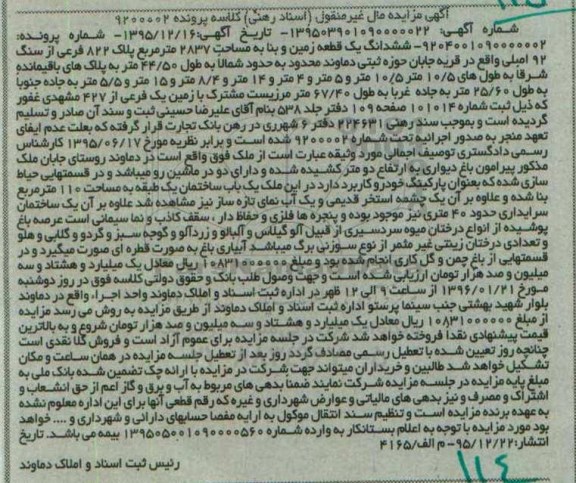 ۱۱۵
آگهی مزایده مال غیرمنقول (اسناد رهنی) کلاسه پرونده ۹۲۰۰۰۰۲
شماره آگهی: ۱۳۹۵۰۳۹۰۱۰۹۰۰۰۰۲۲- تاریخ آگهی:۱۳۹۵/۱۲/۱۶- شماره پرونده:
۹۲۰۴۰۰۱۰۹۰۰۰۰۰۰۲- ششدانگ یک قطعه زمین و بنا به مساحت ۲۸۳۷ مترمربع پلاک ۸۲۲ فرعی از سنگ
۹۲ اصلی واقع در قریه جابان حوزه ثبتی دماوند محدود به حدود شمالا به طول ۴۴/۵۰ متر به پلاک های باقیمانده
شرقا به طول های ۱۰/۵ متر ۱۰/۵ متر و ۵ متر و ۴ متر و ۱۴ متر و ۸/۴ متر و ۱۵ متر و ۵/۵ متر به جاده جنوبا
به طول ۲۵/۶۰ متر به جاده غربا به طول ۶۷/۴۰ متر مرزیست مشترک با زمین یک فرعی از ۴۲۷ مشهدی غفور
که ذیل ثبت شماره ۱۰۱۰۱۴ صفحه ۱۰۹ دفتر جلد ۵۳۸ بنام آقای علیرضا حسینی ثبت و سند آن صادر و تسلیم
گردیده است و بموجب سند رهنی ۲۳۴۶۳۱ دفتر ۶ شهرری در رهن بانک تجارت قرار گرفته که بعلت عدم ایفای
تعهد منجر به صدور اجرائیه تحت شماره ۹۲۰۰۰۰۲ شده است و برابر نظریه مورخ ۱۳۹۵/۰۶/۱۷ کارشناس
رسمی دادگستری توصیف اجمالی مورد وثیقه عبارت است از ملک فوق واقع است در دماوند روستای جابان ملک
مذکور پیرامون باغ دیواری به ارتفاع دو متر کشیده شده و دارای دو در ماشین رو میباشد و در قسمتهایی حیاط
سازی شده که بعنوان پارکینگ خودرو کاربرد دارد در این ملک یک باب ساختمان یک طبقه به مساحت ۱۱۰ مترمربع
بنا شده و علاوه بر آن یک چشمه استخر قدیمی و یک آب نمای تازه ساز نیز مشاهده شد علاوه بر آن یک ساختمان
سرایداری حدود ۴۰ متری نیز موجود بوده و پنجره ها فلزی و حفاظ دار ، سقف کاذب و نما سیمانی است عرصه باغ
پوشیده از انواع درختان میوه سردسیری از قبیل آلو گیلاس و آلبالو و زردآلو و گوجه سبز و گردو و گلابی و هلو
و تعدادی درختان زینتی غیر مثمر از نوع سوزنی برگ میباشد آبیاری باغ به صورت قطره ای صورت میگیرد و در
قسمتهایی از باغ چمن و گل کاری انجام شده بود و مبلغ ۱۰۸۳۱۰۰۰۰۰۰ ریال معادل یک میلیارد و هشتاد و سه
میلیون و صد هزار تومان ارزیابی شده است وجهت وصول طلب بانک و حقوق دولتی کلاسه فوق در روز دوشنبه
مورخ ۱۳۹۶/۰۱/۲۱ از ساعت ۹ الی ۱۲ ظهر در اداره ثبت اسناد و املاک دماوند واحد اجرا، واقع در دماوند
بلوار شهید بهشتی جنب سینما پرستو اداره ثبت اسناد و املاک دماوند از طریق مزایده به روش می رسد مزایده
از مبلغ ۱۰۸۳۱۰۰۰۰۰۰ ریال معادل یک میلیارد و هشتاد و سه میلیون و صد هزار تومان شروع و به بالاترین
قیمت پیشنهادی نقدا فروخته خواهد شد شرکت در جلسه مزایده برای عموم آزاد است و فروش کلا نقدی است
چنانچه روز تعیین شده با تعطیل رسمی مصادف گردد روز بعد از تعطیل جلسه مزایده در همان ساعت و مکان
تشکیل خواهد شد طالبین و خریداران میتوانند جهت شرکت در مزایده با ارائه چک تضمین شده بانک ملی به
مبلغ پایه مزایده در جلسه مزایده شرکت نمایند ضمنا بدهی های مربوط به آب و برق و گاز اعم از حق انشعاب و
اشتراک و مصرف و نیز بدهی های مالیاتی و عوارض شهرداری و غیره که رقم قطعی آنها برای این اداره معلوم نشده
به عهده برنده مزایده است و تنظیم سند انتقال موکول به ارایه مفصا حسابهای دارائی و شهرداری و .... خواهد
بود مورد مزایده با توجه به اعلام بستانکار به وارده شماره ۱۳۹۵۰۵۰۰۱۰۹۰۰۰۰۵۶۰ بیمه می باشد. تاریخ
انتشار:۹۵/۱۲/۲۲- م الف/۴۱۶۵
رئیس ثبت اسناد و املاک دماوند
۱۱۴